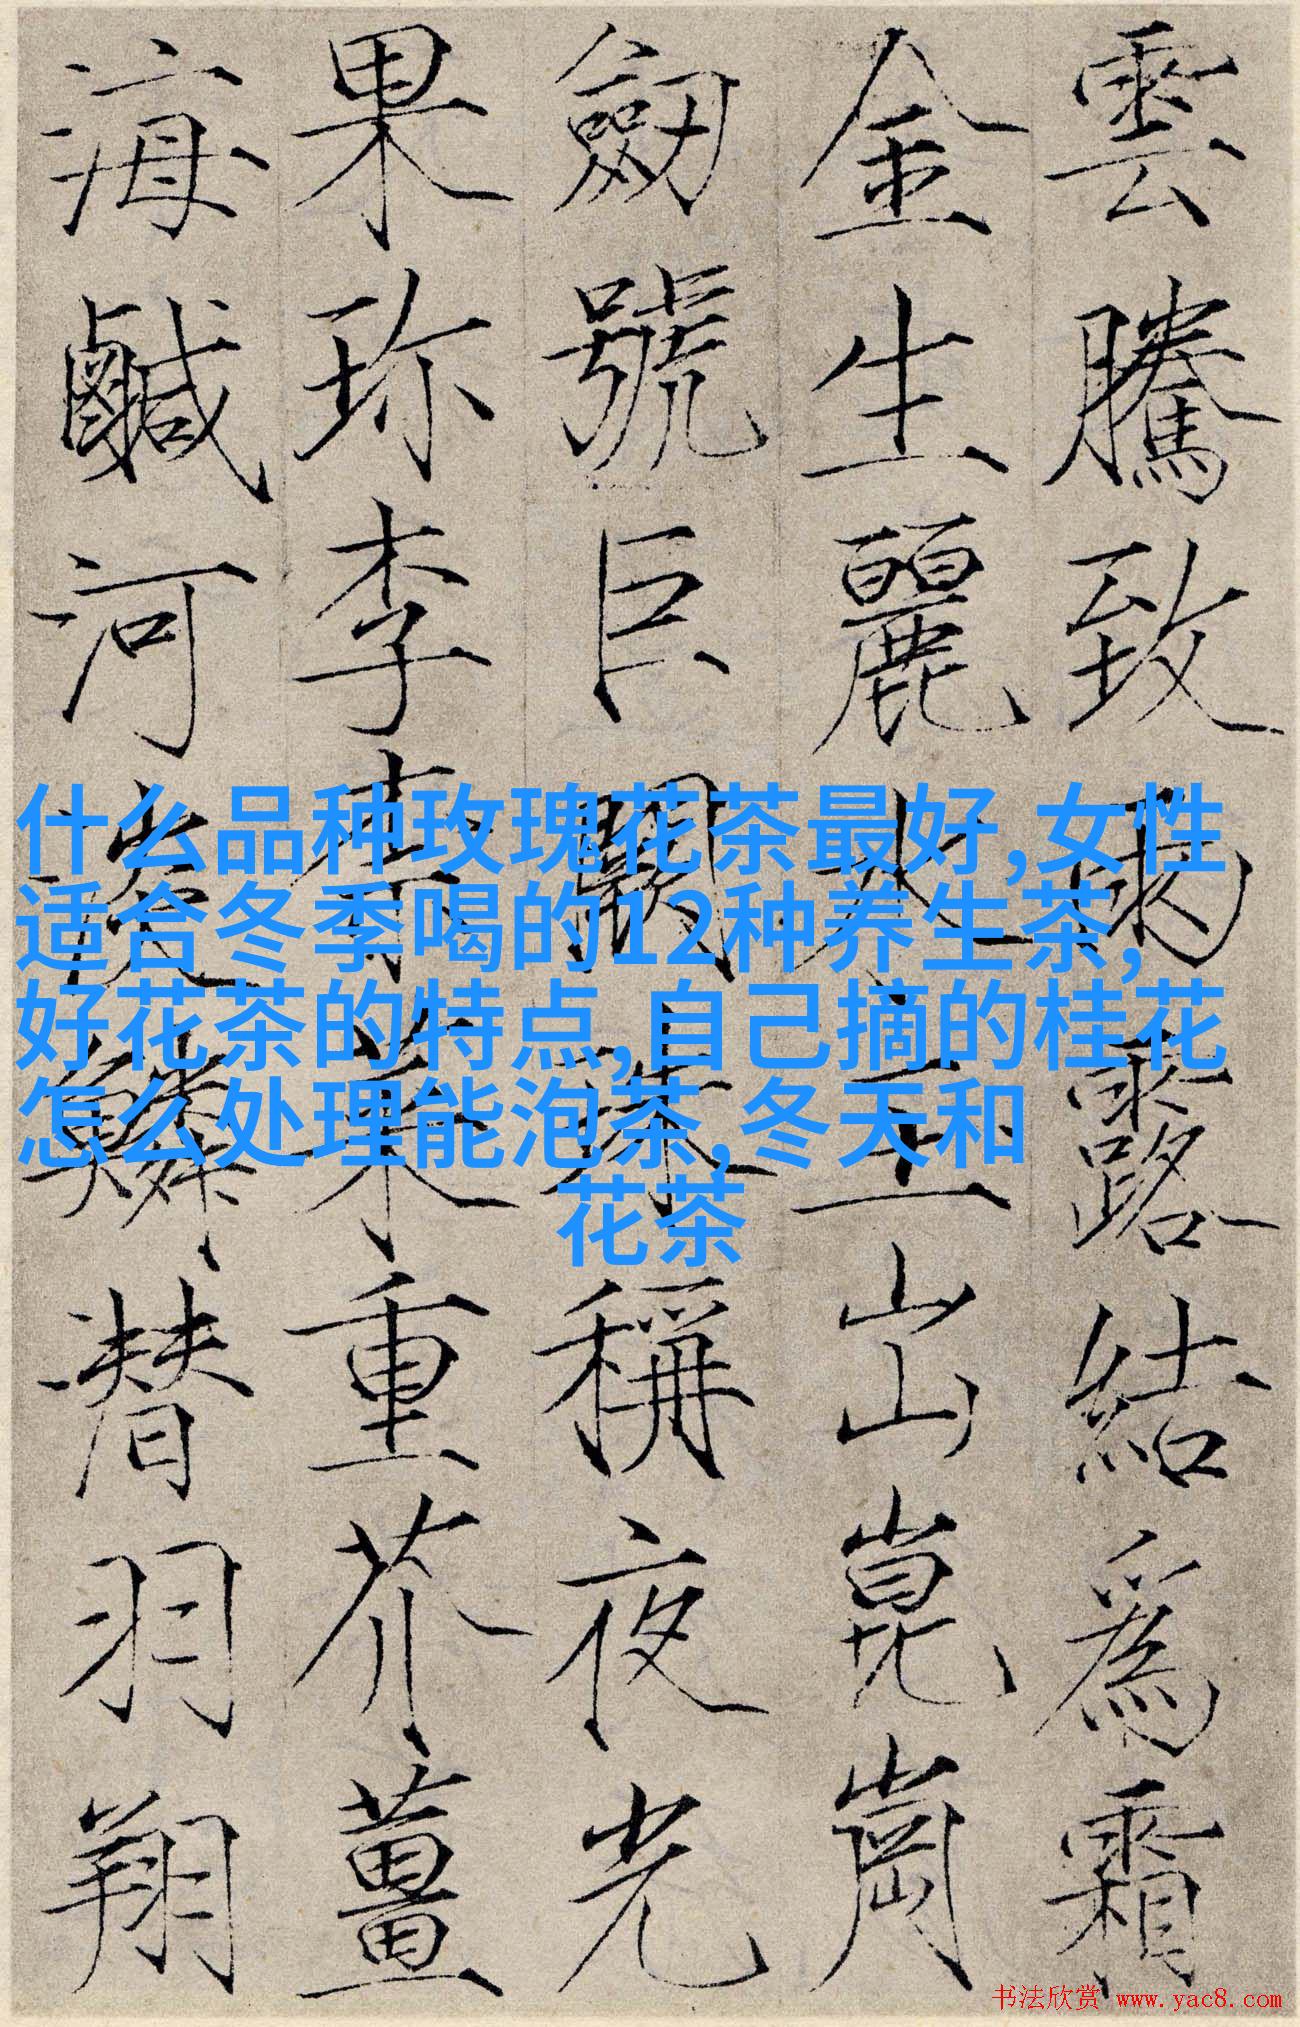 雲騰致雨露結爲霜
金生麗水玉出崑崗
劒號巨闕珠稱夜光
果珎李柰菜重芥薑
海鹹河淡鱗潛羽翔
什么品种玫瑰花茶最好,女性
适合冬季喝的12种养生茶,
好花茶的特点,自己摘的桂花
怎么处理能泡茶,冬天和
花茶
书法欣赏 www.yac8.com